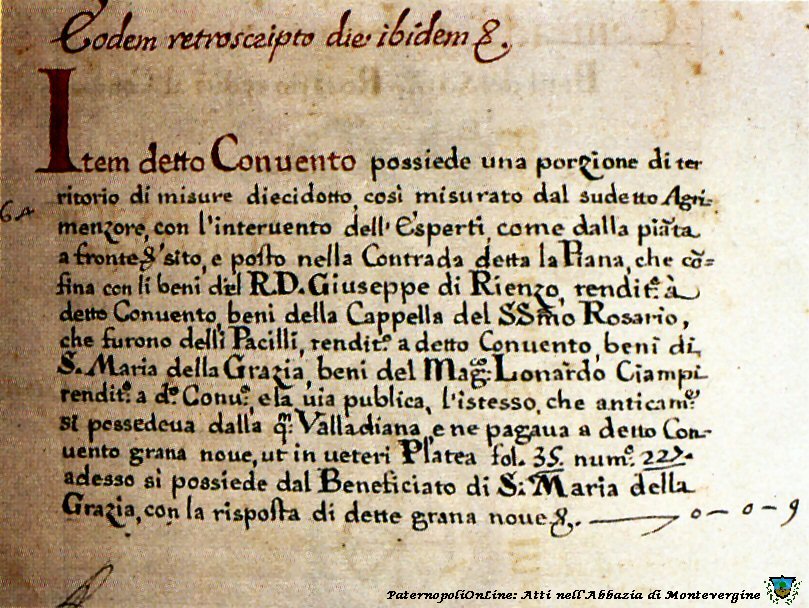 Eodem retroscripto die ibidem &.
Item detto Conuento possiede una porzione di ter
ritorio di misure diecidotto, così misurato dal sudetto Agri-
64
menzore, con l'interuento dell'Esperti, come dalla piãta
a fronte &' sito, e posto nella Contrada detta la Piana, che cõ=
fina con li beni del R.D. Giuseppe di Rienzo, rendit.e à
detto Conuento, beni della Cappella del SSmo Rosario,
che furono delli Pacilli, rendit.e a detto Conuento, beni di
S. Maria della Grazia, beni del Mag.co Lonardo Ciampi
rendit.e a d.o Conu.o, e la uia publica, l'istesso, che anticam.e
si possedeua dalla q.m Valladiana, e ne pagaua a detto Con-
uento grana noue, ut in ueteri Platea fol. 35. num.o 227.
adesso si possiede dal Beneficiato di S. Maria della
Grazia, con la risposta di dette grana noue &. — 0-0-9
PaternopoliOnLine: Atti nell'Abbazia di Montevergine